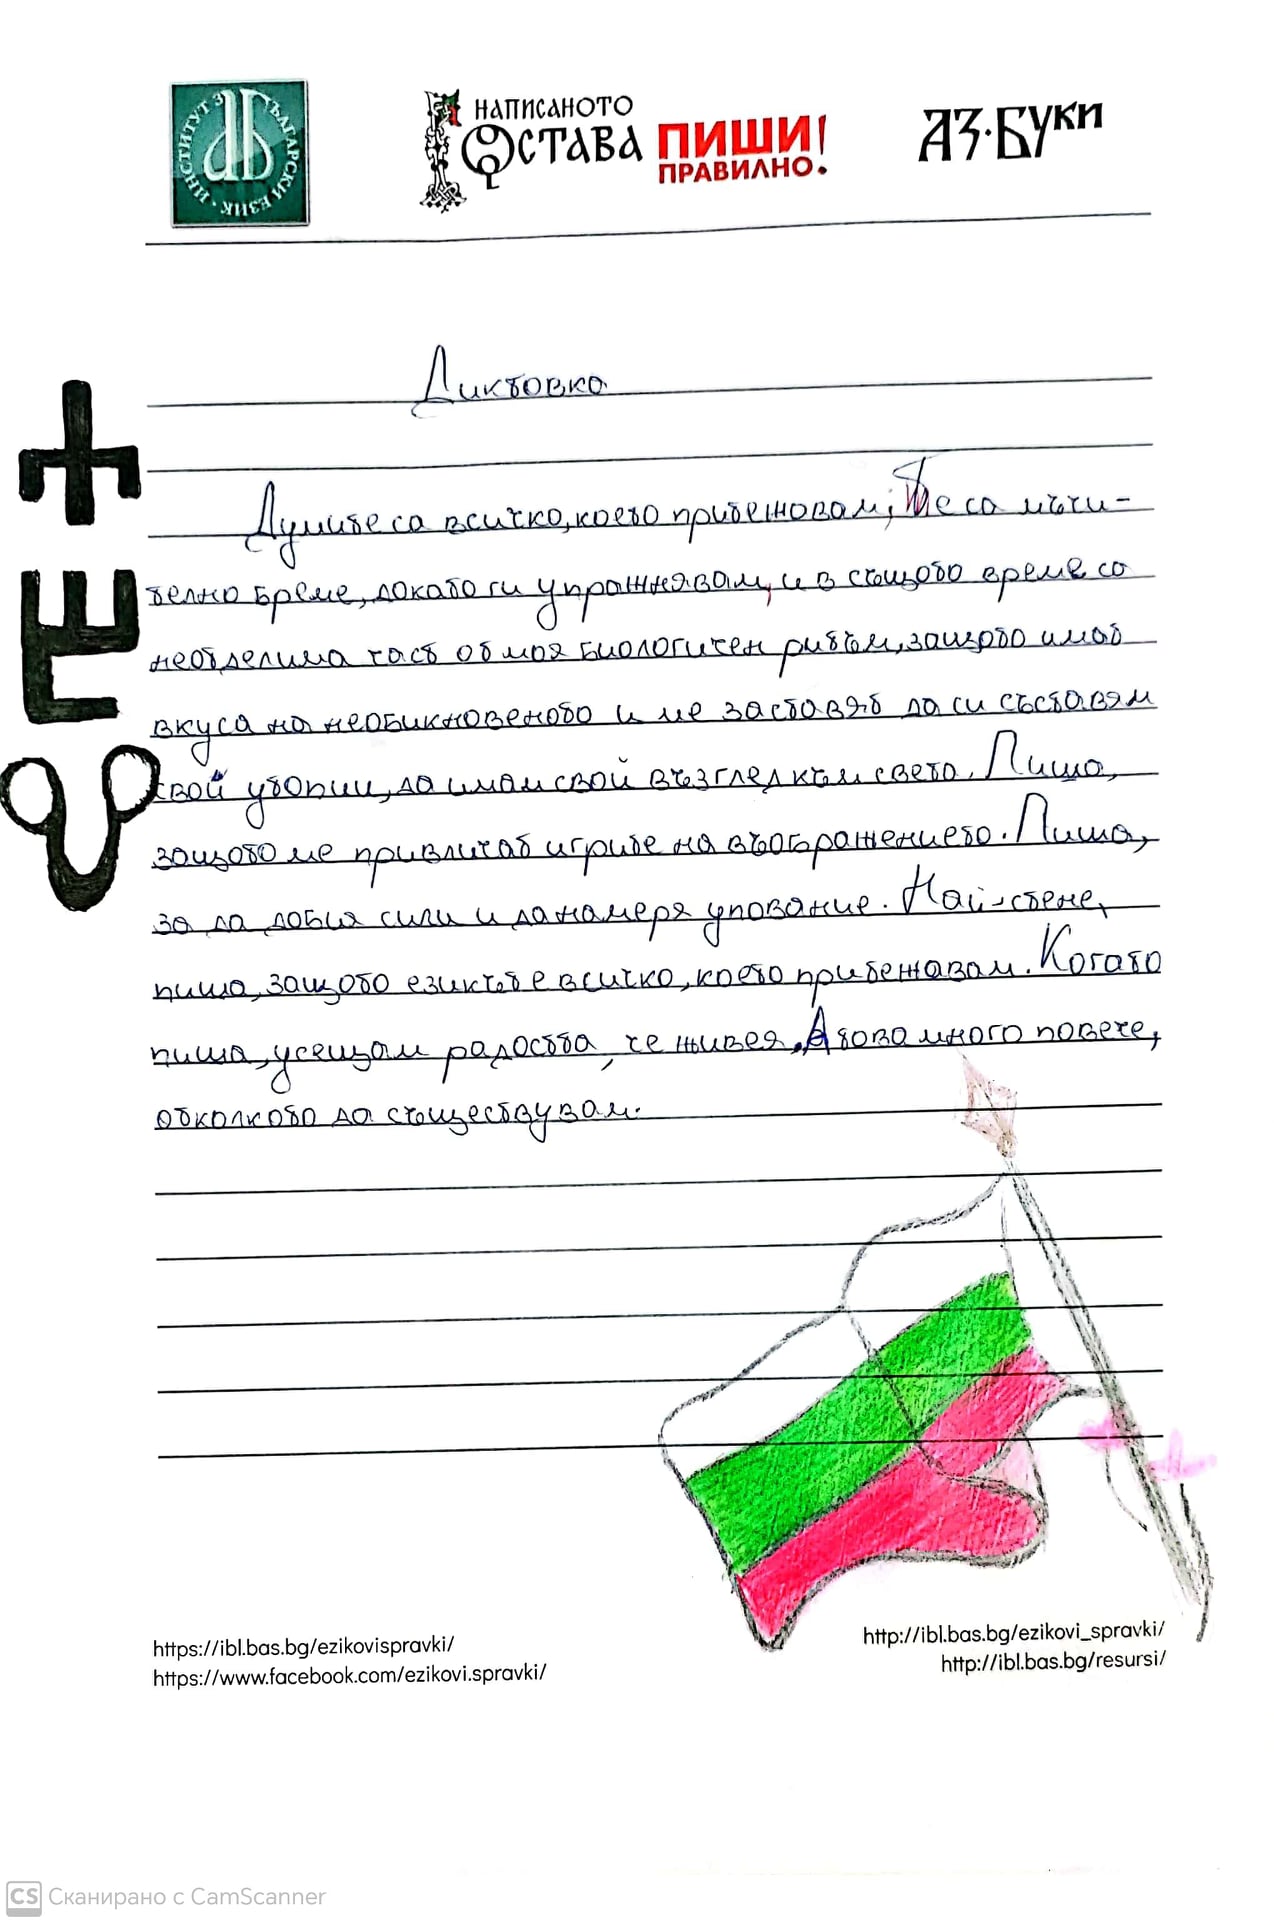 ИНСТИТУТ ЗА БЪЛГАРСКИ ЕЗИК
НАПИСАНОТО
ОСТАВА
ПИШИ!
ПРАВИЛНО.
АЗ·БУКИ
Диктовка
Думите са всичко, което притежавам; Те са мъчи-
телно бреме, докато ги упражнявам, и в същото време са
неотделима част от моя биологичен ритъм, защото имат
вкуса на необикновеното и ме заставят да си съставям
свой утопии, да имам свой възглед към света. Пиша,
защото ме привличат игрите на въображението. Пиша,
за да добия сили и да намеря упование. Най-сетне,
пиша, защото езикът е всичко, което притежавам. Когато
пиша, усещам радостта, че живея. А това много повече,
отколкото да съществувам.
https://ibl.bas.bg/ezikovispravki/
https://www.facebook.com/ezikovi.spravki/
http://ibl.bas.bg/ezikovi_spravki/
http://ibl.bas.bg/resursi/
CS Сканирано с CamScanner